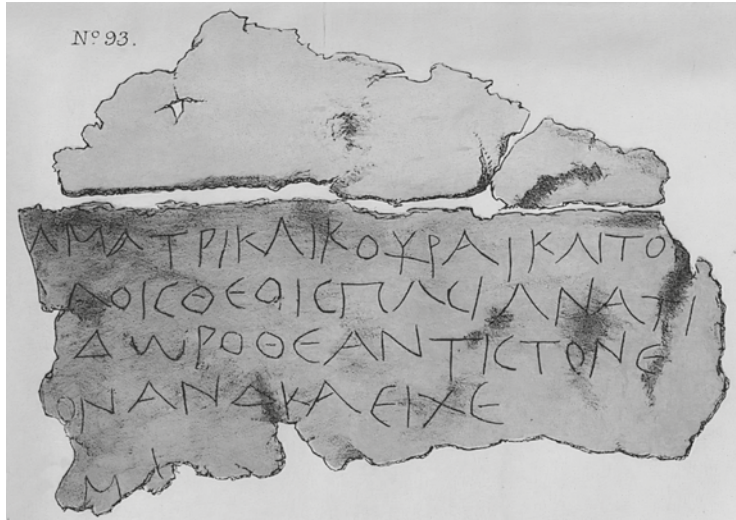 Nº 93.
ΑΜΑΤΡΙΚΑΙΚΟΥΡΑΙΚΑΙΤΟ
ΛΟΙϹΘΕΟΙϹΠΑϹΙΑΝΑΤΙ
ΔΩΡΟΘΕΑΝΤΙϹΤΟΝΕ
ΟΝΑΝΔΚΑΕΙΧΕ